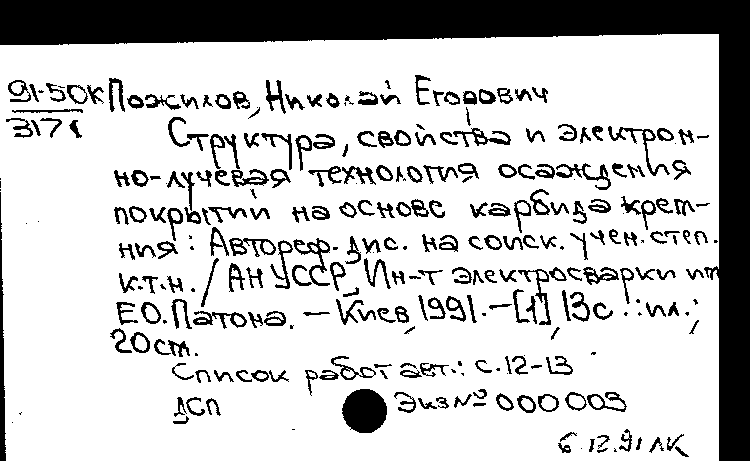 91-50К Пожилов, Николай Егорович
3171 Структура, свойства и электрон-
но-лучевая технология осаждения
покрытий на основе карбида крем-
ния : Автореф. дис. на соиск. учен. степ.
к.т.н. / АН УССР, Ин-т электросварки им
Е.О. Патона. — Киев, 1991. — [1], 13 с. : ил. ;
20 cm.
Список работ авт.: с. 12-13
ДСП Экз № 000003
6.12.91 ЛК